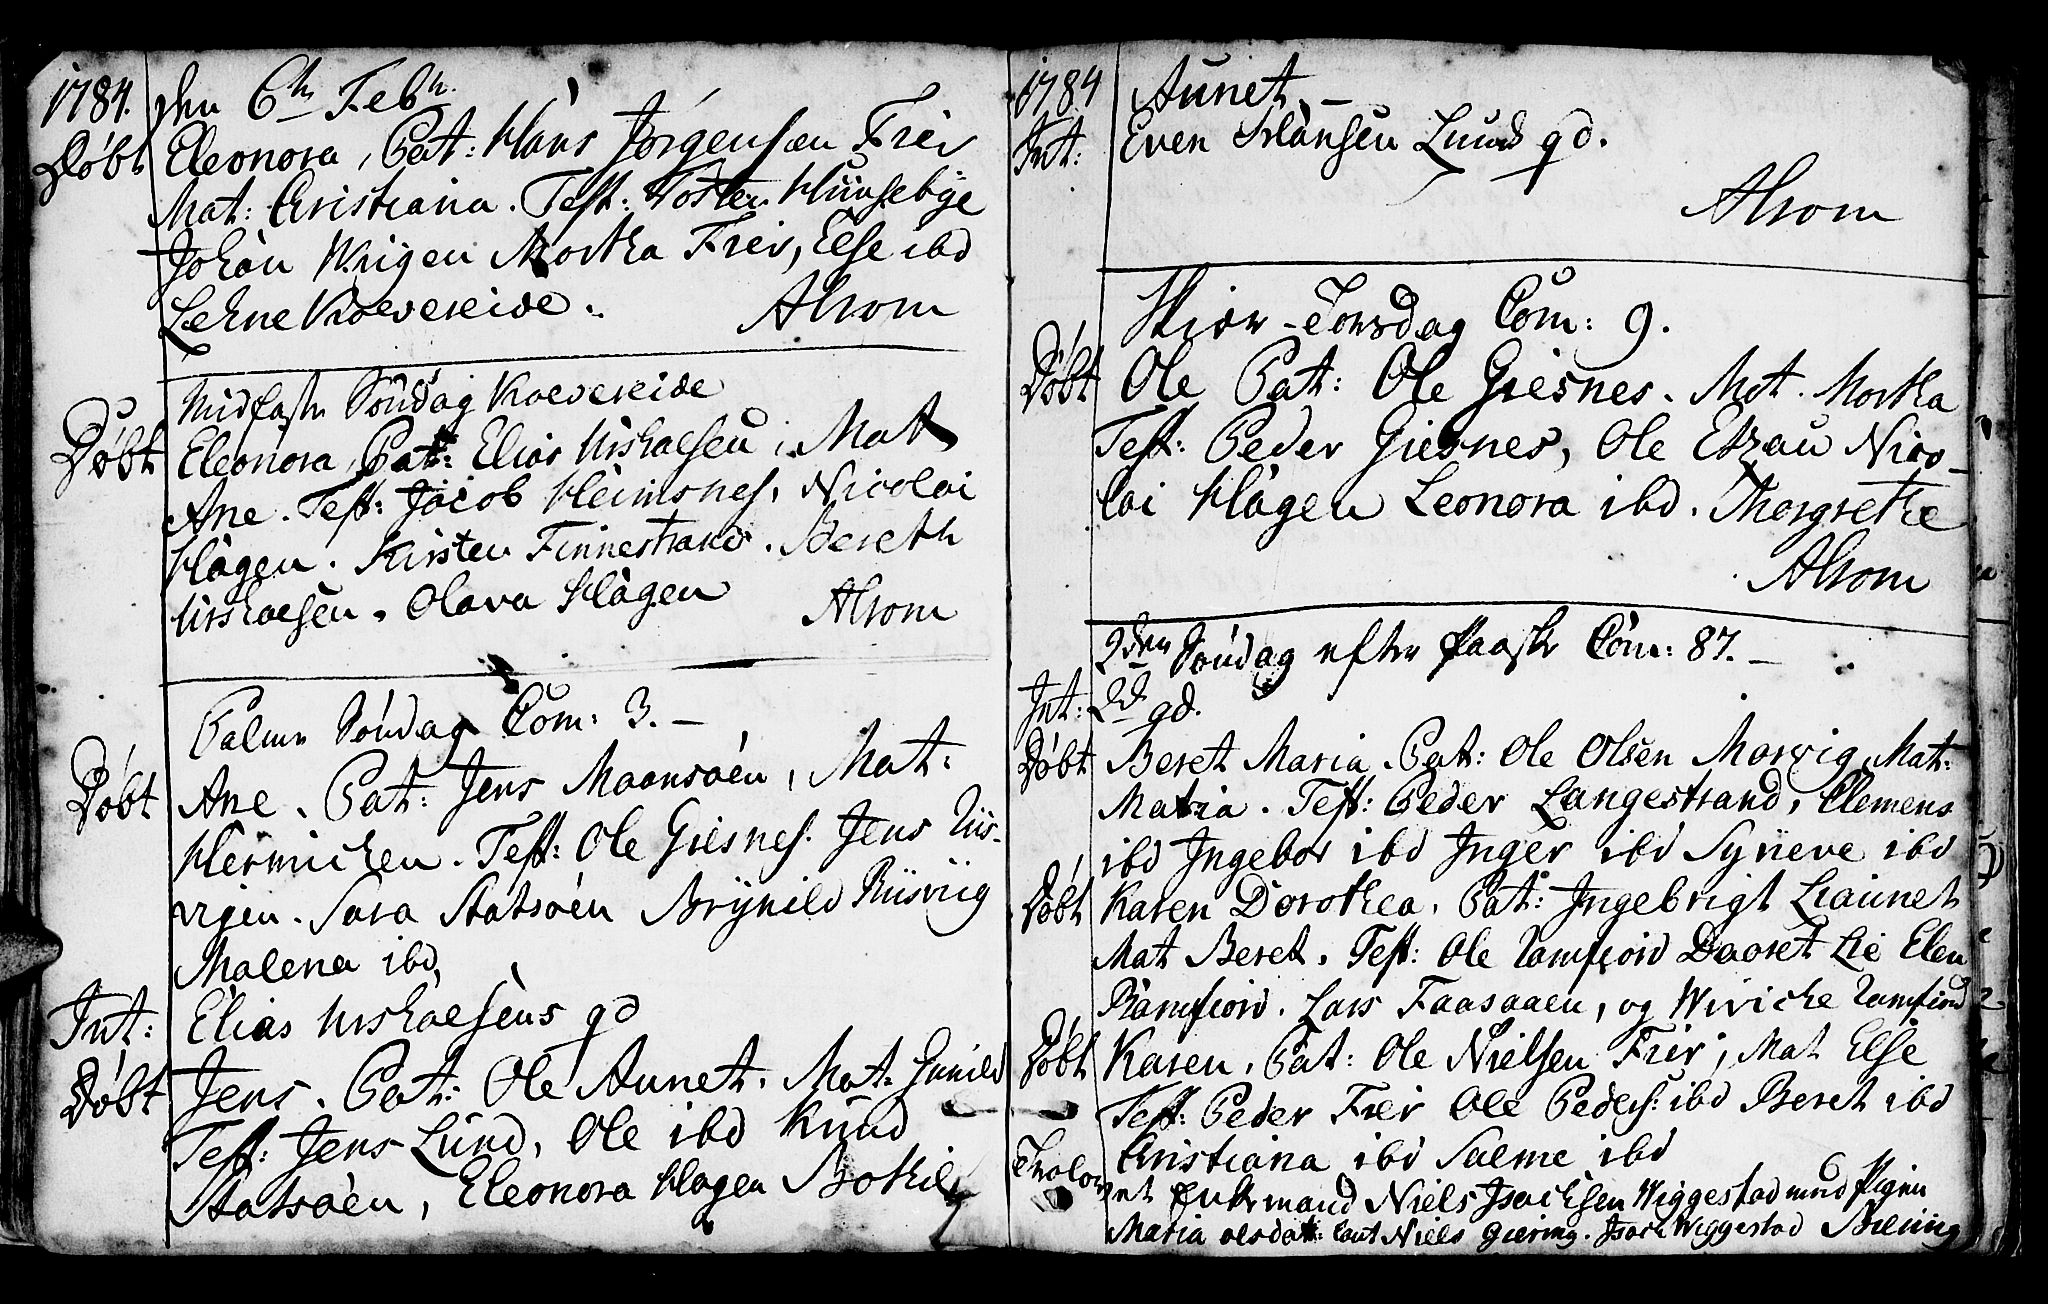 1784. den 6te Febr.
Døbt Eleonora, Pat: Hans Jørgensen Frei
Mat: Cristiana. Test: Tosten Hunsebye
Johan Wigen Martha Frei, Else ibd
Lehne Kolvereide. Ahrom
Midfaste Søndag Kolvereide
Døbt Eleonora, Pat: Elias Mikaelsen, Mat
Ane. Test: Jacob Heimsnes, Nicolai
Hagen. Kirsten Finnestrand. Bereth
Mikaelsen. Olava Hagen Ahrom
Palme Søndag Com: 3.
Døbt Ane. Pat: Jens Maansøen, Mat:
Hermichen. Test: Ole Giesnes. Jens Riis-
vigen. Sara Statsøen Brynild Riisviig
Malena ibd
Int: Elias Mikaelsens qd
Døbt Jens. Pat: Ole Aunet. Mat: Gunild
Test: Jens Lund, Ole ibd Knud
Statsøen, Eleonora Hagen Bothil
1784 Aunet.
Int: Even Hansen Lund qd.
Ahrom
Skier-Torsdag Com: 9.
Døbt Ole Pat: Ole Giesnes. Mat. Martha
Test: Peder Giesnes, Ole Eszau Nico-
lai Hagen Leonora ibd. Margrethe
Ahrom
2den Søndag efter Paaske Com: 87.
Int: 2d qd.
Døbt Beret Maria. Pat: Ole Olsen Marvig Mat:
Maria. Test: Peder Langestrand, Clemens
ibd Ingebor ibd Inger ibd Syneve ibd
Døbt Karen Dorothea. Pat: Ingebrigt Liaunet
Mat Beret. Test: Ole Ramfiord Daaret Lie Elen
Ramfiord. Lars Faasaaen, og Wiviche Ramfiord
Døbt Karen. Pat: Ole Nielsen Frei, Mat Else
Test: Peder Frei Ole Peders: ibd Beret ibd
Cristiana ibd Salme ibd
Trolovet Enkemand Niels Isachsen Wiggestad med Pigen
Maria olsdat: Caut Niels Giering. Isach Wiggestad